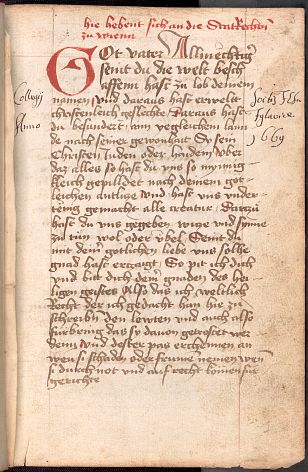 hie hebent sich an die Statrechtn
zu wienn
Got vater Allmechtiger
seint du die welt besch
affenn hast zu lob deinem
namen, vnd daraus hast erwelt
christenleich geslechte, Daraus hast
du besundert ainn yegleichenn lannde
nach seiner gewonhait So sein
Christen Juden oder haiden, vber
daz alles so hast du vns so mynnig
kleich gepilldet nach deinem got
leichen antlutz vnd hast vns vnder
tenig gemacht alle creatur, Darzu
hast du vns gegeben witze vnd synne
zu tun wol oder vbel, Seint du
mit deiner gotlichen liebe vns solhe
gnad hast erczaigt So pit ich dich
vnd lad dich deinn gnaden des hei
ligen geistes Also das ich weltlich
Recht der ich gedacht han hie zu
schreibn den lewten vnd auch also
furbring das sy dauon getrostet wer
denn, vnd dester pas erchennen an
wew si schaden oder frumen nemen wenn
si durch not vnd auf recht komen fur
gerichte
Collegij
Anno
Socts Jesu
1669